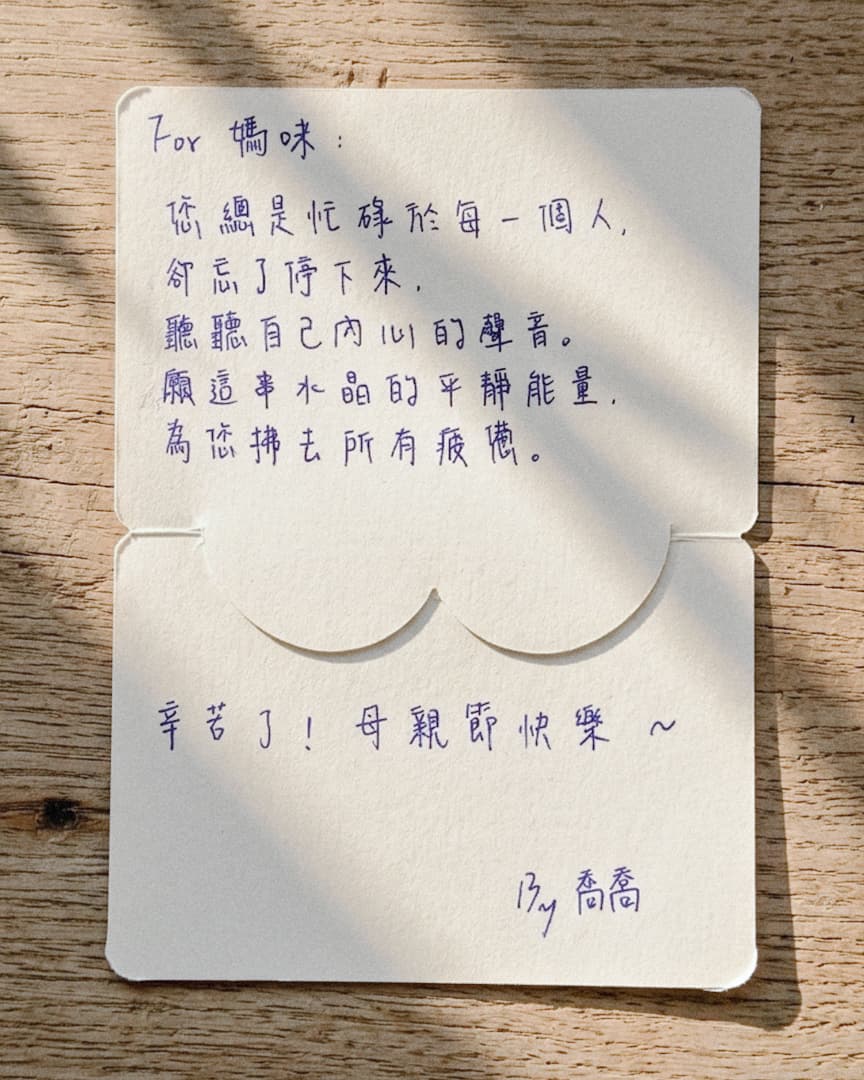 For 媽咪：
您總是忙碌於每一個人，
卻忘了停下來，
聽聽自己內心的聲音。
願這串水晶的平靜能量，
為您拂去所有疲憊。
辛苦了！母親節快樂～
By 喬喬